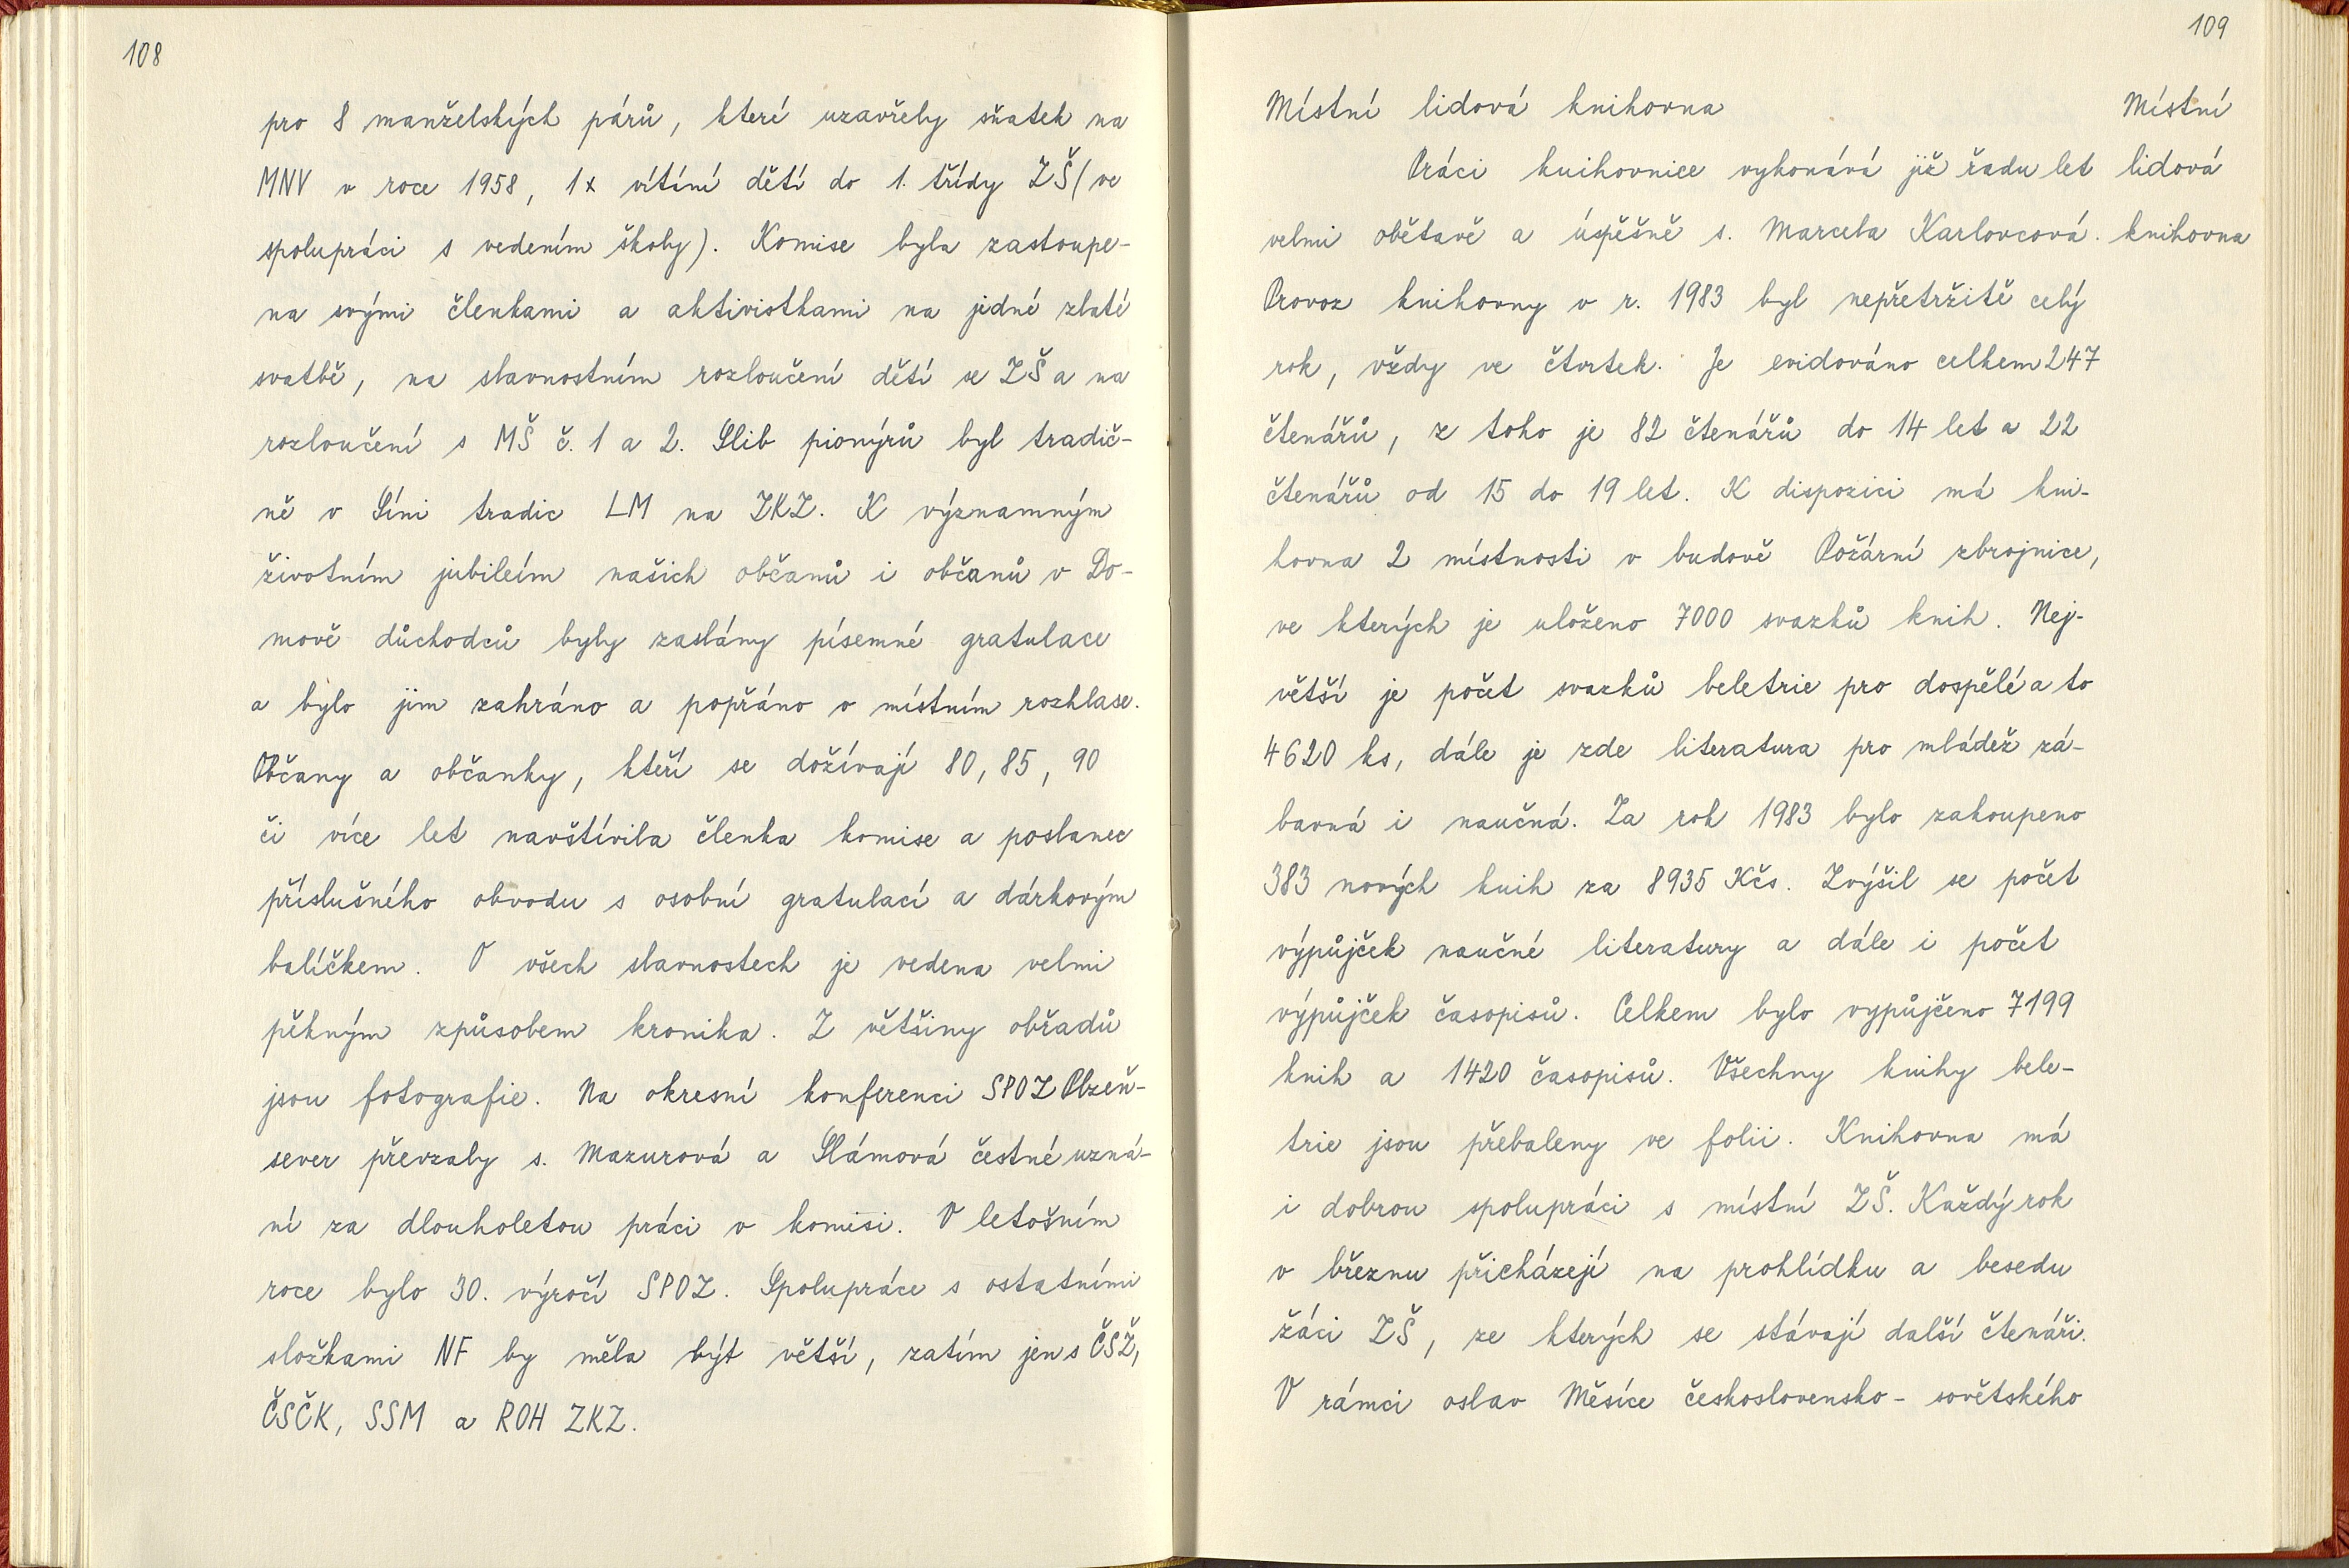 108
pro 8 manželských párů, které uzavřely sňatek na
MNV v roce 1958, 1x vítání dětí do 1. třídy ZŠ (ve
spolupráci s vedením školy). Komise byla zastoupe-
na svými členkami a aktivistkami na jedné zlaté
svatbě, na slavnostním rozloučení dětí se ZŠ a na
rozloučení s MŠ č. 1 a 2. Slib pionýrů byl tradič-
ně v Síni tradic LM na ZKZ. K významným
životním jubileím našich občanů i občanů v Do-
mově důchodců byly zaslány písemné gratulace
a bylo jim zahráno a popřáno v místním rozhlase.
Občany a občanky, kteří se dožívají 80, 85, 90
či více let navštívila členka komise a poslanec
příslušného obvodu s osobní gratulací a dárkovým
balíčkem. O všech slavnostech je vedena velmi
pěkným způsobem kronika. Z většiny obřadů
jsou fotografie. Na okresní konferenci SPOZ Plzeň-
sever převzaly s. Mazurová a Slámová čestné uzná-
ní za dlouholetou práci v komisi. V letošním
roce bylo 30. výročí SPOZ. Spolupráce s ostatními
složkami NF by měla být větší, zatím jen s ČSŽ,
ČSČK, SSM a ROH ZKZ.
109
Místní lidová knihovna
Místní
lidová
knihovna
Práci knihovnice vykonává již řadu let
velmi obětavě a úspěšně s. Marcela Karlovcová.
Provoz knihovny v r. 1983 byl nepřetržitě celý
rok, vždy ve čtvrtek. Je evidováno celkem 247
čtenářů, z toho je 82 čtenářů do 14 let a 22
čtenářů od 15 do 19 let. K dispozici má kni-
hovna 2 místnosti v budově Požární zbrojnice,
ve kterých je uloženo 7000 svazků knih. Nej-
větší je počet svazků beletrie pro dospělé a to
4620 ks, dále je zde literatura pro mládež zá-
bavná i naučná. Za rok 1983 bylo zakoupeno
383 nových knih za 8935 Kčs. Zvýšil se počet
výpůjček naučné literatury a dále i počet
výpůjček časopisů. Celkem bylo vypůjčeno 7199
knih a 1420 časopisů. Všechny knihy bele-
trie jsou přebaleny ve folii. Knihovna má
i dobrou spolupráci s místní ZŠ. Každý rok
v březnu přicházejí na prohlídku a besedu
žáci ZŠ, ze kterých se stávají další čtenáři.
V rámci oslav Měsíce československo-sovětského